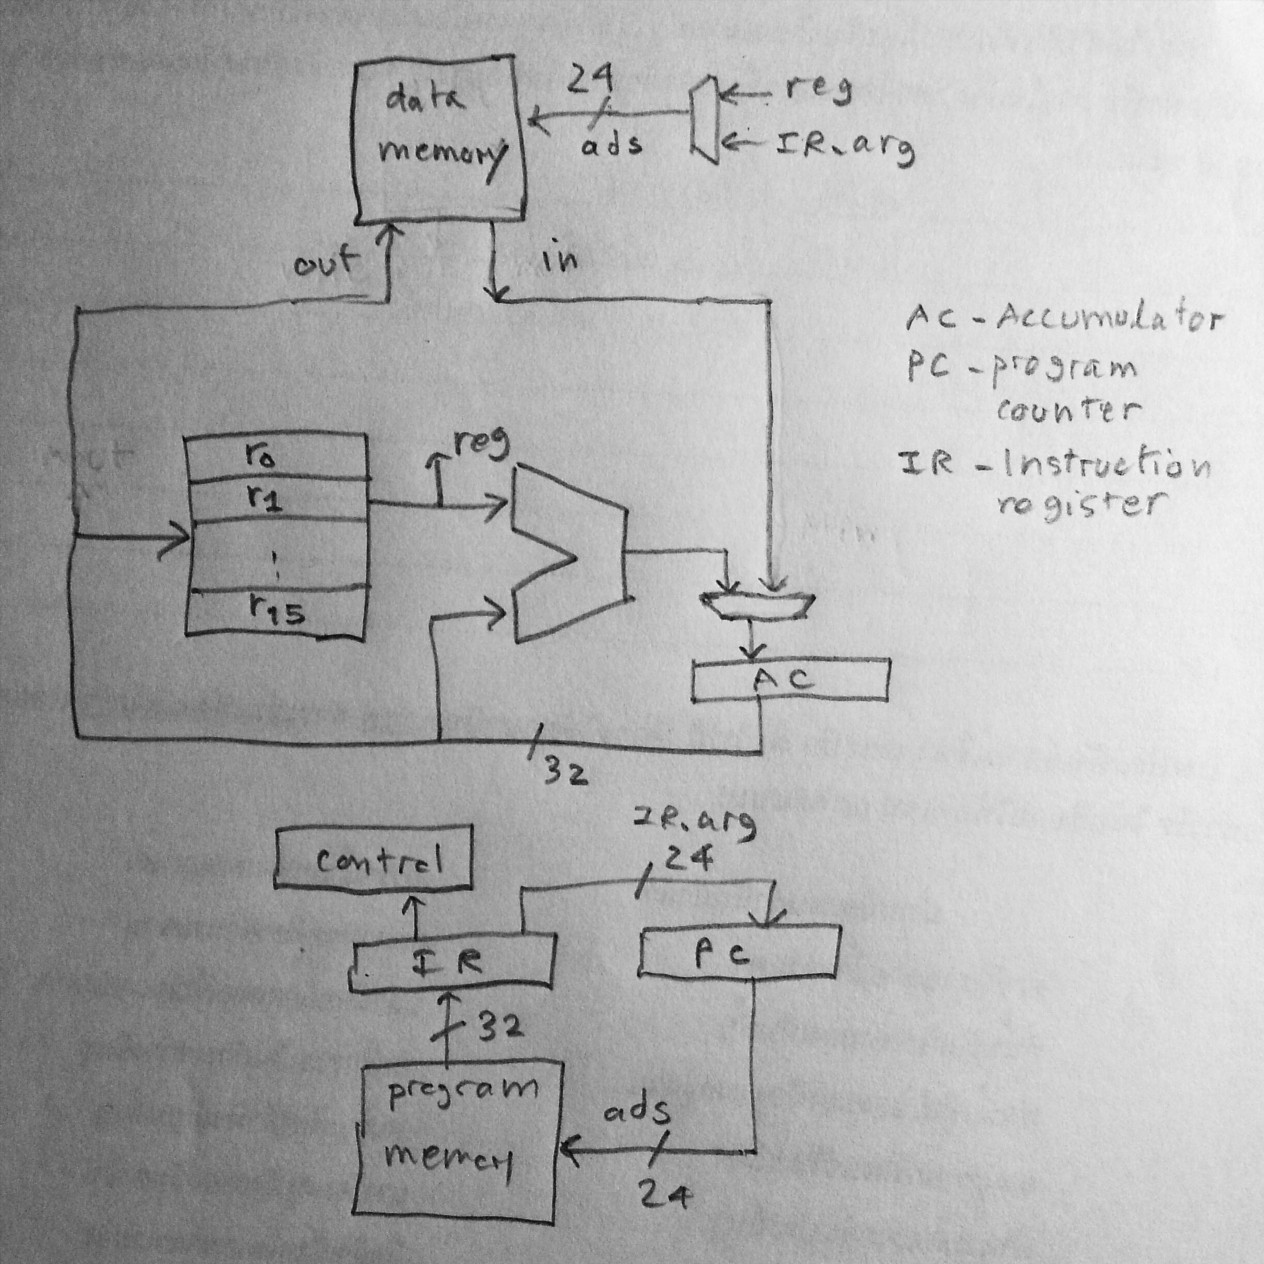 data
memory
24
ads
reg
IR.arg
out
in
AC - Accumulator
PC - program
counter
IR - Instruction
register
reg
r0
r1
⋮
r15
AC
32
IR.arg
24
control
IR
PC
32
program
memory
ads
24